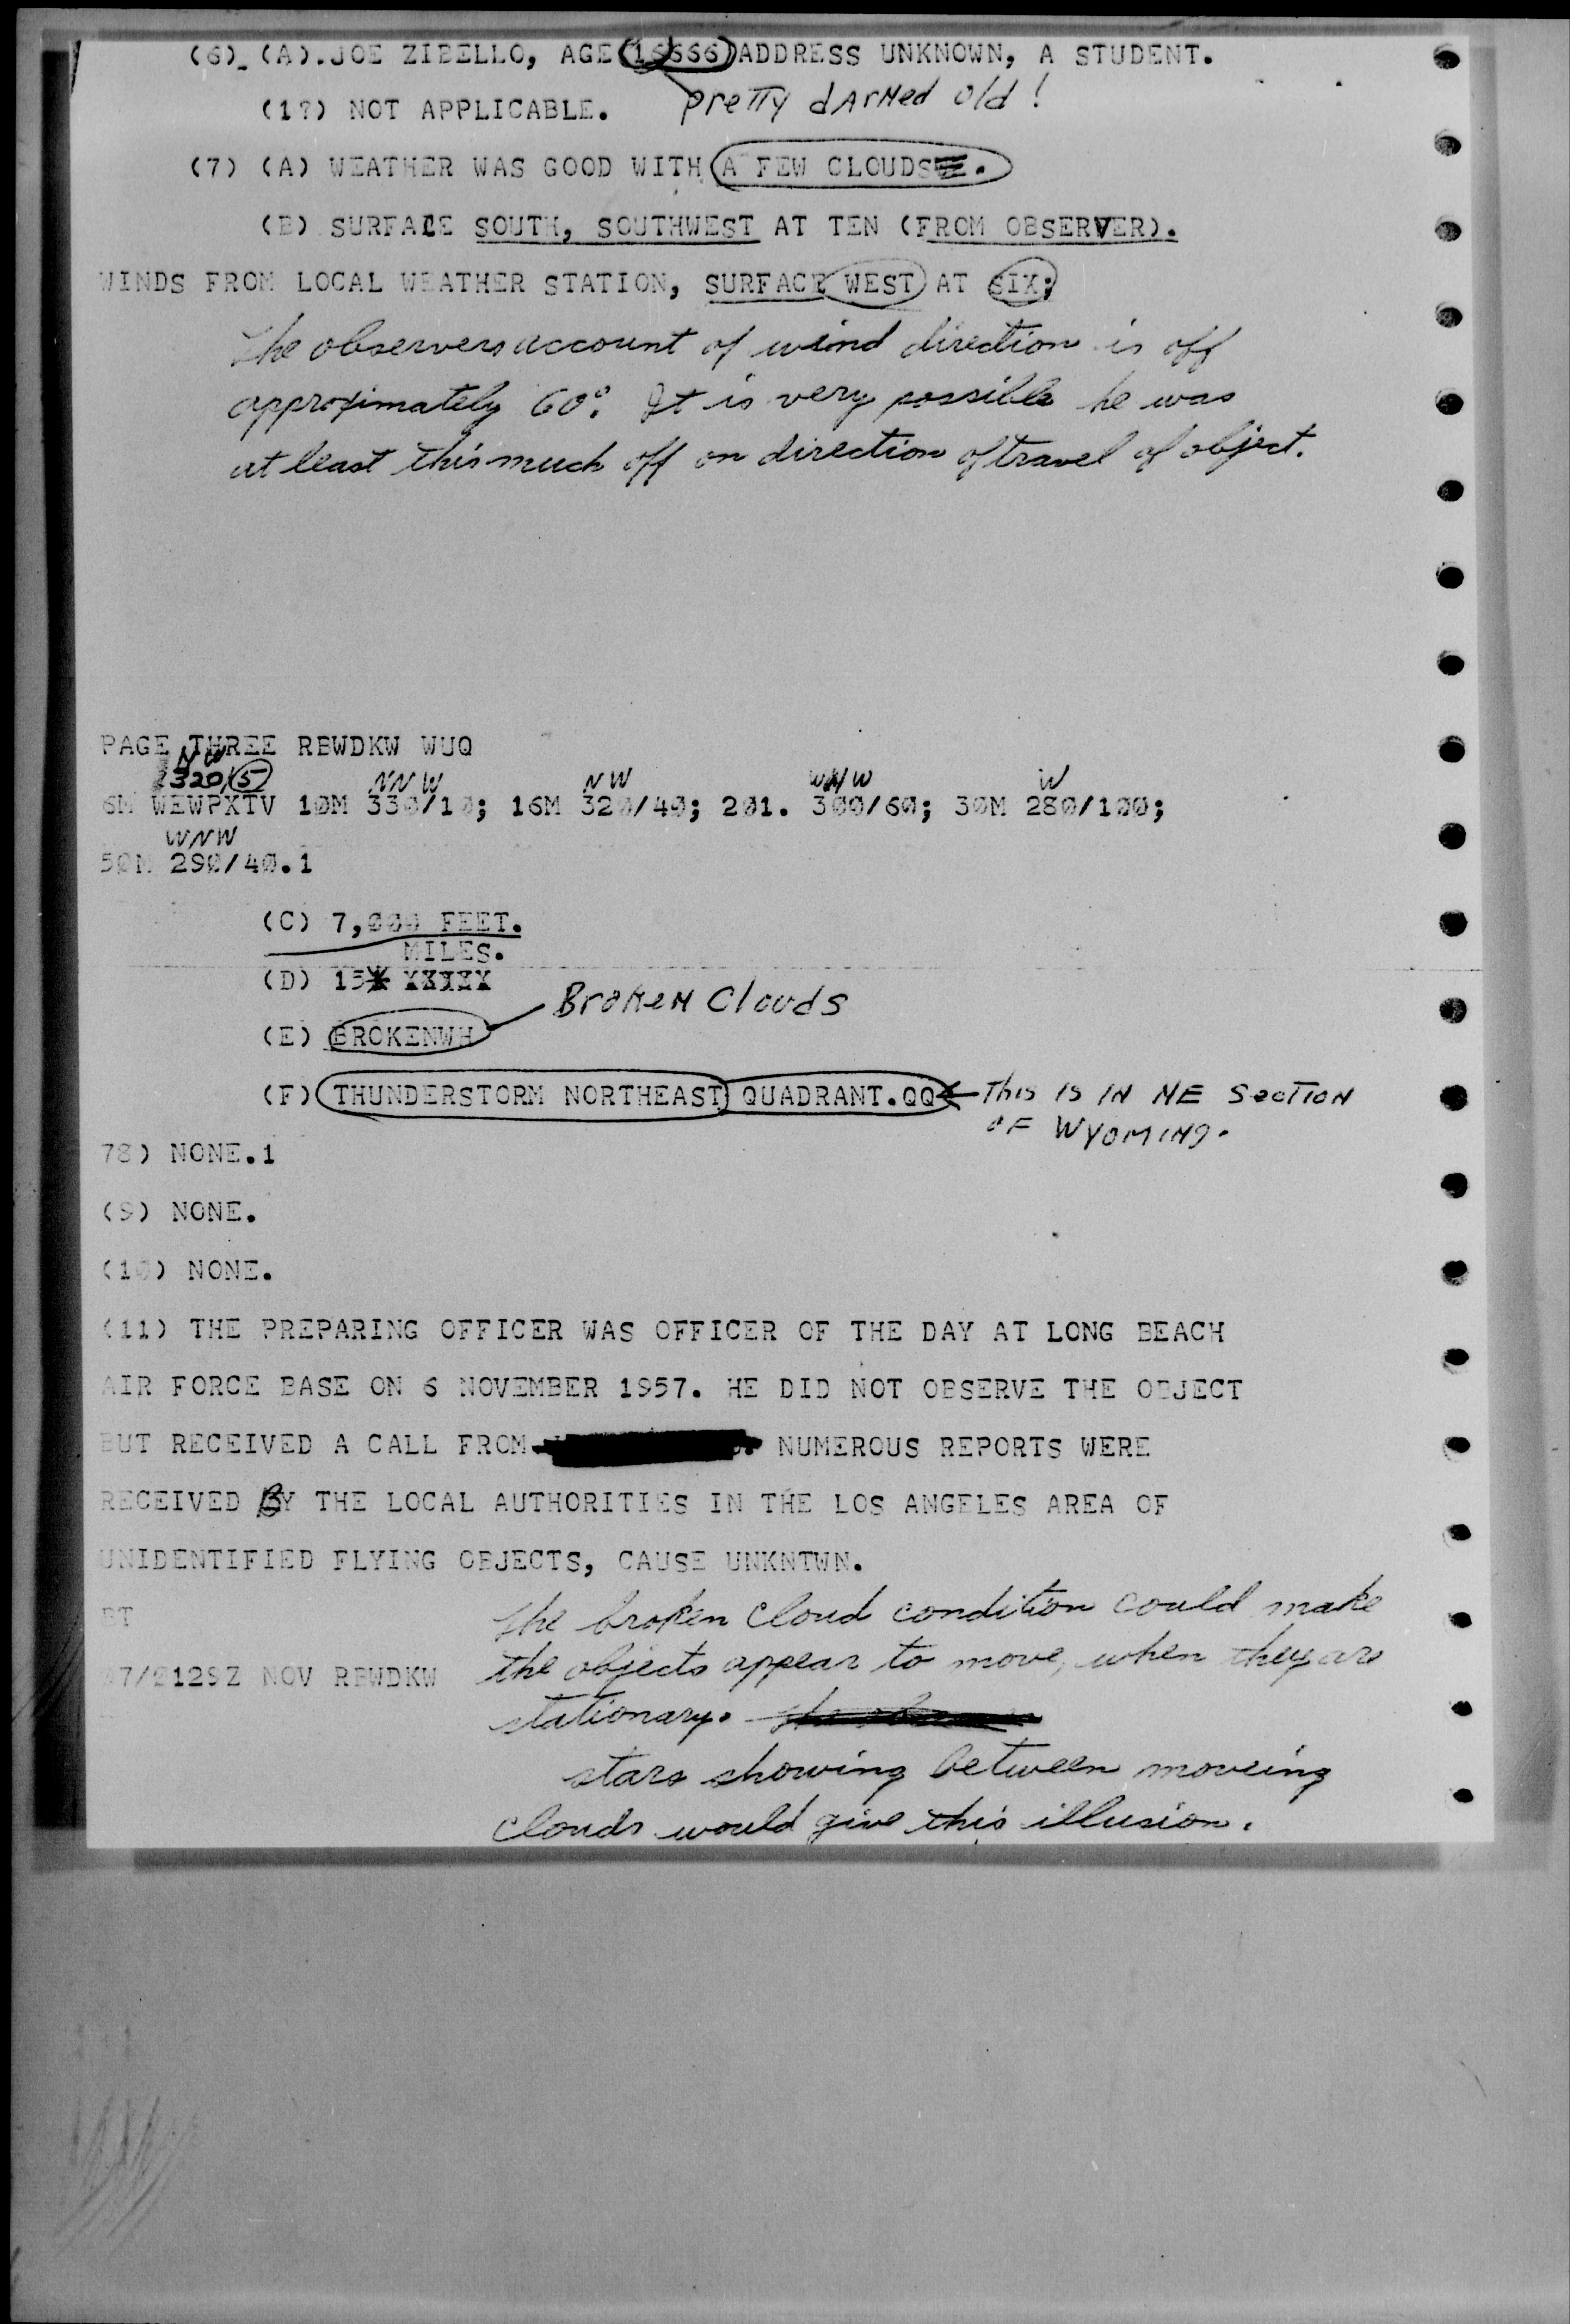 (6) (A).JOE ZIBELLO, AGE 16666 ADDRESS UNKNOWN, A STUDENT.
(1?) NOT APPLICABLE. Pretty dArNed old!
(7) (A) WEATHER WAS GOOD WITH A FEW CLOUDS.
(B) SURFACE SOUTH, SOUTHWEST AT TEN (FROM OBSERVER).
WINDS FROM LOCAL WEATHER STATION, SURFACE WEST AT SIX;
The observers account of wind direction is off
approximately 60°. It is very possible he was
at least this much off on direction of travel of object.
PAGE THREE RBWDKW WUQ
NW
320/5 NNW NW WNW W
6M WEWPXTV 10M 330/10; 16M 320/40; 201. 300/60; 30M 280/100;
WNW
50M 290/40.1
(C) 7,000 FEET.
MILES.
(D) 15 XXXXX
Broken Clouds
(E) BROKENWH
(F) THUNDERSTORM NORTHEAST QUADRANT.QQ This is IN NE Section
OF WYOMING.
78) NONE.1
(9) NONE.
(10) NONE.
(11) THE PREPARING OFFICER WAS OFFICER OF THE DAY AT LONG BEACH
AIR FORCE BASE ON 6 NOVEMBER 1957. HE DID NOT OBSERVE THE OBJECT
BUT RECEIVED A CALL FROM NUMEROUS REPORTS WERE
RECEIVED BY THE LOCAL AUTHORITIES IN THE LOS ANGELES AREA OF
UNIDENTIFIED FLYING OBJECTS, CAUSE UNKNTWN.
BT
The broken cloud condition could make
07/2129Z NOV RBWDKW the objects appear to move, when they are
stationary.
stars showing between moveing
clouds would give this illusion.